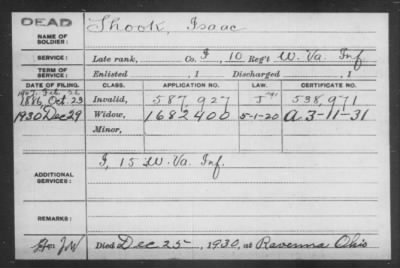 DEAD
NAME OF SOLDIER:
Shook, Isaac
SERVICE:
Late rank, Co. I, 10 Reg't W. Va. Inf.
TERM OF SERVICE:
Enlisted , 1 Discharged , 1
DATE OF FILING. CLASS. APPLICATION NO. LAW. CERTIFICATE NO.
1886, Oct. 23 Invalid, 587,927 538,971
1930, Dec 29 Widow, 1682400 5-1-20 a. 3-11-31
Minor,
ADDITIONAL SERVICES:
I, 15 W. Va. Inf.
REMARKS:
Died Dec 25, 1930, at Ravenna Ohio